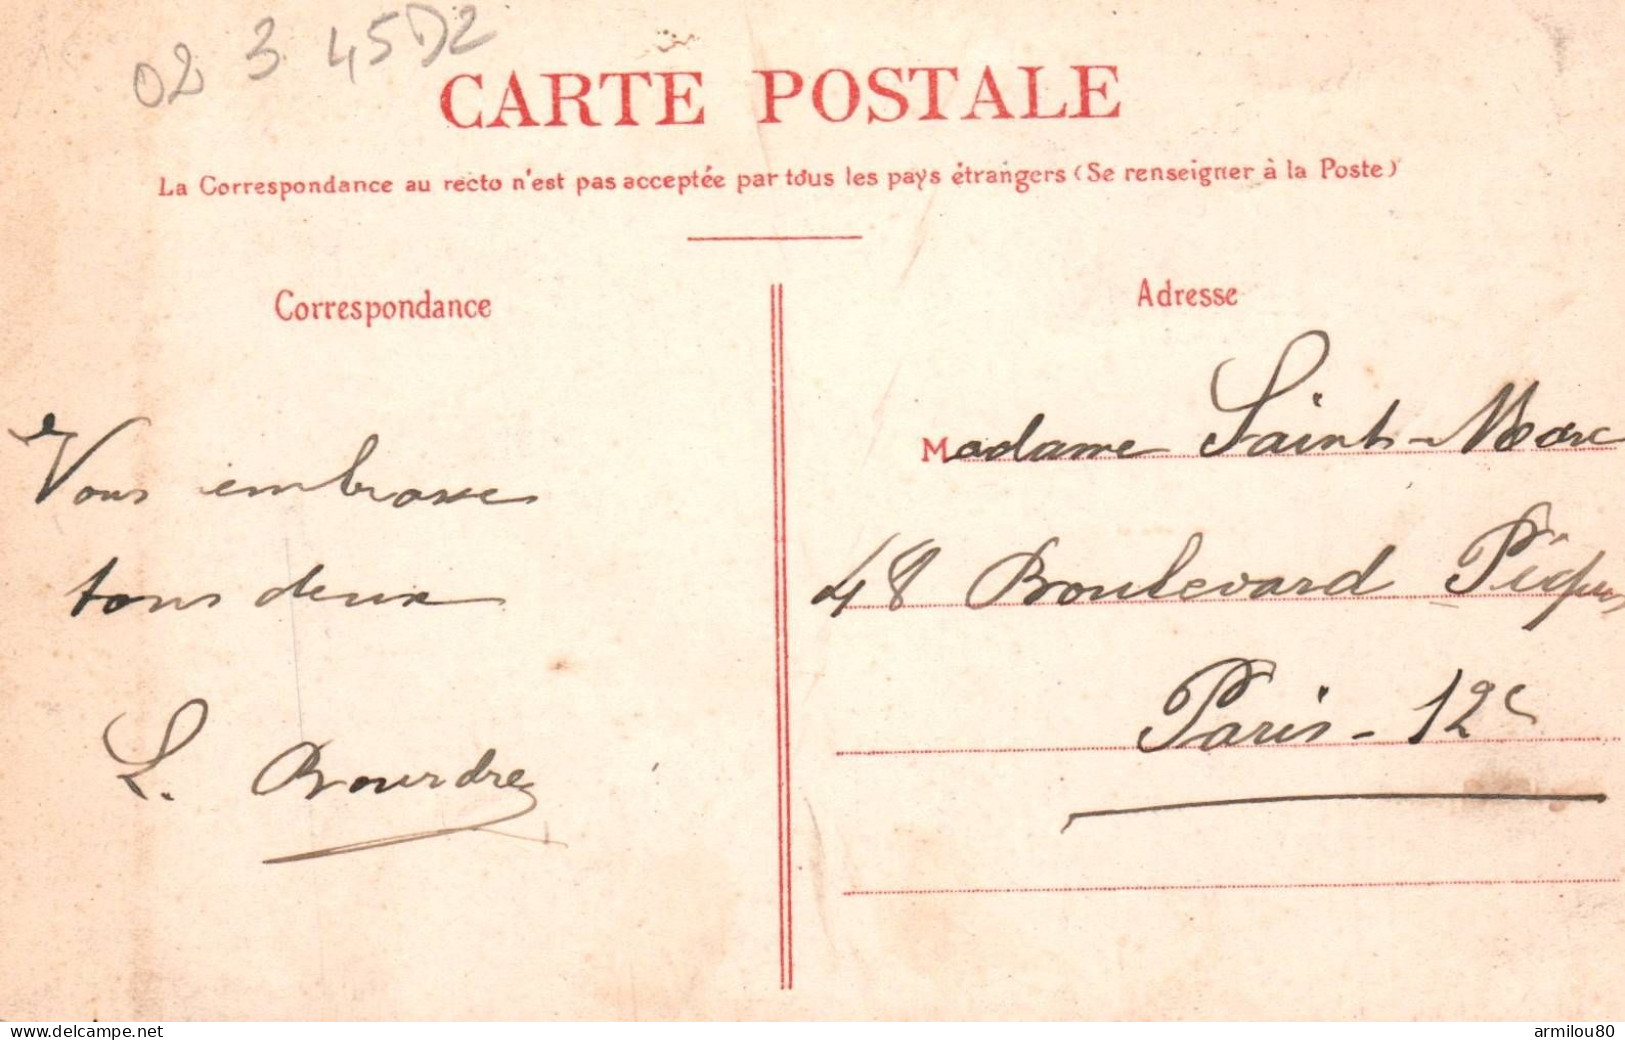 02 3 45D2
CARTE POSTALE
La Correspondance au recto n'est pas acceptée par tous les pays étrangers (Se renseigner à la Poste)
Correspondance
Vous embrasse
tous deux
L. Bourdrez
Adresse
Madame Saint-Marc
48 Boulevard Picpus
Paris - 12e
www.delcampe.net
armilou80